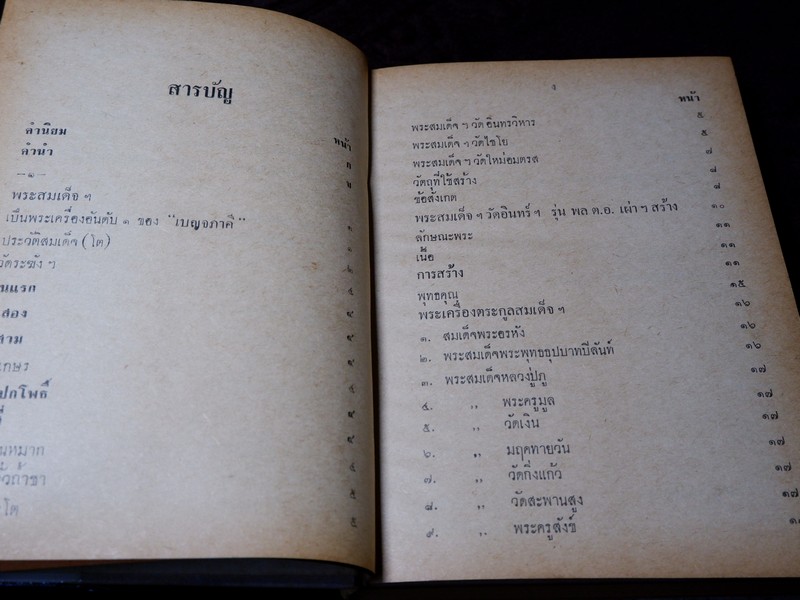 สารบัญ
หน้า
คำนิยม ก
คำนำ ข
—๑—
พระสมเด็จ ฯ
เป็นพระเครื่องอันดับ ๑ ของ "เบญจภาคี" ๑
ประวัติสมเด็จ (โต) ๑
วัดระฆัง ฯ ๒
นแรก ๔
สอง ๔
สาม ๔
เกษร ๔
ปกโพธิ์ ๔
๔
นหมาก ๔
๔
โต ๕
๕
ง
หน้า
พระสมเด็จ ฯ วัดอินทรวิหาร ๕
พระสมเด็จ ฯ วัดไชโย ๕
พระสมเด็จ ฯ วัดใหม่อมตรส ๗
วัตถุที่ใช้สร้าง ๗
ข้อสังเกต ๗
พระสมเด็จ ฯ วัดอินทร์ ฯ รุ่น พล ต.อ. เผ่า ฯ สร้าง ๑๐
ลักษณะพระ ๑๑
เนื้อ ๑๑
การสร้าง ๑๑
พุทธคุณ ๑๕
พระเครื่องตระกูลสมเด็จ ฯ ๑๖
๑. สมเด็จพระอรหัง ๑๖
๒. พระสมเด็จพระพุทธธุปบาทปิลันท์ ๑๖
๓. พระสมเด็จหลวงปู่ภู ๑๗
๔. ,, พระครูมูล ๑๗
๕. ,, วัดเงิน ๑๗
๖. ,, มฤคทายวัน ๑๗
๗. ,, วัดกิ่งแก้ว ๑๗
๘. ,, วัดสะพานสูง
๙. ,, พระครูสังข์